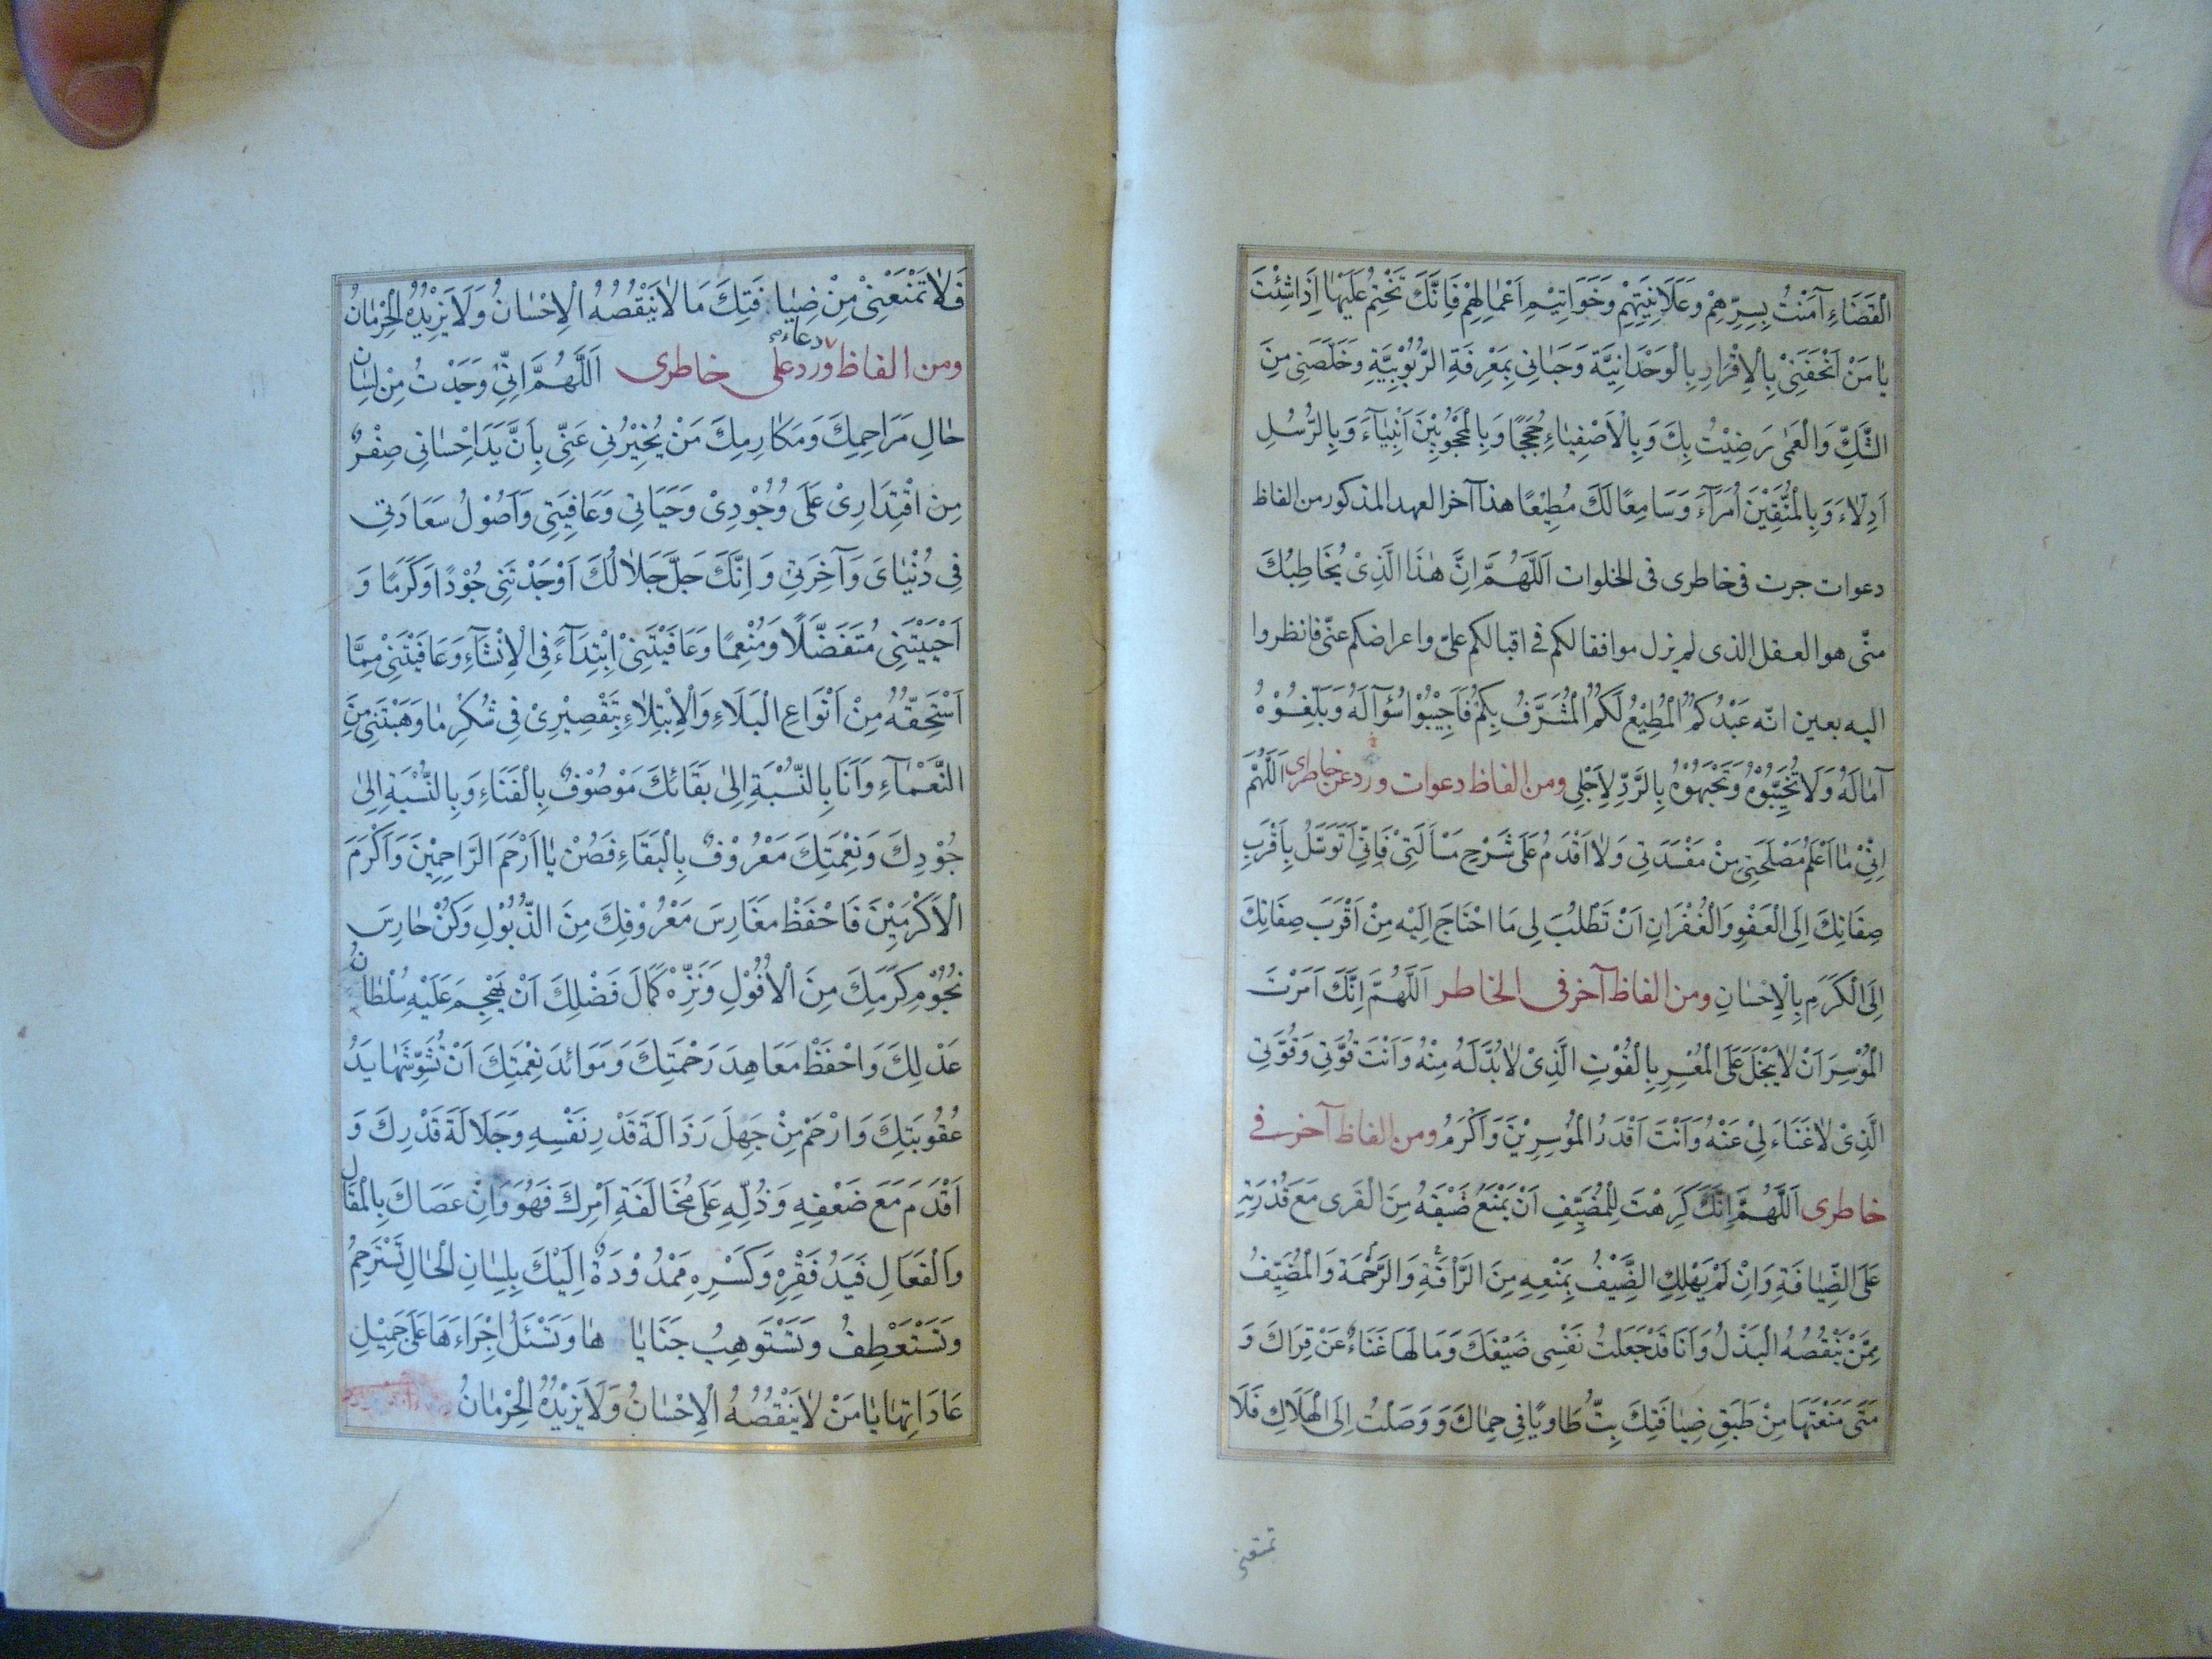 الْقَضَاءِ آمَنْتُ بِسِرِّهِمْ وَعَلَانِيَتِهِمْ وَخَوَاتِيْمِ اَعْمَالِهِمْ فَاِنَّكَ تَخْتِمُ عَلَيْهَا اِذَا شِئْتَ
يَا مَنْ اَتْحَفَنِيْ بِالْاِقْرَارِ بِالْوَحْدَانِيَّةِ وَحَبَانِي بِمَعْرِفَةِ الرُّبُوْبِيَّةِ وَخَلَّصَنِي مِنَ
الشَّكِّ وَالْعَمٰى رَضِيْتُ بِكَ وَبِالْاَصْفِيَاءِ حُجَجًا وَبِالْمَحْجُوْبِيْنَ اَنْبِيَآءَ وَبِالرُّسُلِ
اَدِلَّاءَ وَبِالْمُتَّقِيْنَ اُمَرَآءَ وَسَامِعًا لَكَ مُطِيْعًا هذا آخر العهد المذكور من الفاظ
دعوات جرت فى خاطرى فى الخلوات اَللّٰهُمَّ اِنَّ هٰذَا الَّذِيْ يُخَاطِبُكَ
منّى هو العقل الذى لم يزل موافقا لكم فى اقبالكم علىّ واعراضكم عنّى فانظروا
اليه بعين انّه عَبْدُكُمُ الْمُطِيْعُ لَكُمُ الْمُشَرَّفُ بِكُمْ فَاَجِيْبُوْا سُؤَآلَهُ وَبَلِّغُوْهُ
آمَالَهُ وَلَا تُخَيِّبُوْهُ وَتَجْبَهُوْهُ بِالرَّدِّ لِاَجْلِي ومن الفاظ دعوات ورد عن خاطرى اَللّٰهُمَّ
اِنِّيْ مَا اَعْلَمُ مَصْلَحَتِي مِنْ مَفْسَدَتِي وَلَا اَقْدَمُ عَلَى شَرْحِ مَسْاَلَتِيْ فَاِنِّي اَتَوَسَّلُ بِاَقْرَبِ
صِفَاتِكَ اِلَى الْعَفْوِ وَالْغُفْرَانِ اَنْ تَطْلُبَ لِي مَا احْتَاجَ اِلَيْهِ مِنْ اَقْرَبَ صِفَاتِكَ
اِلَى الْكَرَمِ بِالْاِحْسَانِ ومن الفاظ آخر فى الخاطر اَللّٰهُمَّ اِنَّكَ اَمَرْتَ
الْمُؤْسِرَ اَنْ لَا يَبْخَلَ عَلَى الْمُعْسِرِ بِالْقُوْتِ الَّذِيْ لَا بُدَّ لَهُ مِنْهُ وَاَنْتَ قُوَّتِي وَقُوَّتِي
الَّذِيْ لَا غَنَاءَ لِيْ عَنْهُ وَاَنْتَ اَقْدَرُ الْمُؤْسِرِيْنَ وَاَكْرَمُ ومن الفاظ آخر فى
خاطرى اَللّٰهُمَّ اِنَّكَ كَرِهْتَ لِلْمُضَيِّفِ اَنْ يَمْنَعَ ضَيْفَهُ مِنَ الْقَرٰى مَعَ قُدْرَتِهِ
عَلَى الضِّيَافَةِ وَاِنْ لَمْ يَهْلِكِ الضَّيْفُ بِمَنْعِهِ مِنَ الرَّأْفَةِ وَالرَّحْمَةِ وَالْمُضَيِّفُ
مِمَّنْ يَنْقُصُهُ الْبَذْلُ وَاَنَا قَدْ جَعَلْتُ نَفْسِي ضَيْفَكَ وَمَا لَهَا غَنَاءٌ عَنْ قِرَاكَ وَ
مَتٰى مَنَعْتَهَا مِنْ طَبَقِ ضِيَافَتِكَ بِتُّ طَاوِيًا فِي حِمَاكَ وَوَصَلْتُ اِلَى الْهَلَاكِ فَلَا
تمنعنى
فَلَا تَمْنَعْنِيْ مِنْ ضِيَافَتِكَ مَا لَا يَنْقُصُهُ الْاِحْسَانُ وَلَا يَزِيْدُهُ الْحِرْمَانُ
دعاء
ومن الفاظ ورد على خاطرى اَللّٰهُمَّ اِنِّي وَجَدْتُ مِنْ لِسَانِ
حَالِ مَرَاحِمِكَ وَمَكَارِمِكَ مَنْ يُخْبِرُنِي عَنِّي بِاَنَّ يَدَ اِحْسَانِي صِفْرٌ
مِن اقْتِدَارِيْ عَلَى وُجُوْدِيْ وَحَيَاتِي وَعَافِيَتِي وَاُصُوْلُ سَعَادَتِي
فِي دُنْيَايَ وَآخِرَتِي وَاِنَّكَ جَلَّ جَلَالُكَ اَوْجَدْتَنِي جُوْدًا وَكَرَمًا وَ
اَحْيَيْتَنِي مُتَفَضِّلًا وَمُنْعِمًا وَعَافَيْتَنِيْ اِبْتِدَآءً فِي الْاِنْشَآءِ وَعَافَيْتَنِيْ مِمَّا
اَسْتَحِقُّهُ مِنْ اَنْوَاعِ الْبَلَاءِ وَالْاِبْتِلَاءِ بِتَقْصِيْرِيْ فِي شُكْرِ مَا وَهَبْتَنِي مِنَ
النَّعْمَآءِ وَاَنَا بِالنِّسْبَةِ اِلٰى بَقَائِكَ مَوْصُوْفٌ بِالْفَنَاءِ وَبِالنِّسْبَةِ اِلٰى
جُوْدِكَ وَنِعْمَتِكَ مَعْرُوْفٌ بِالْبَقَاءِ فَصُنْ يَا اَرْحَمَ الرَّاحِمِيْنَ وَاَكْرَمَ
الْاَكْرَمِيْنَ فَاحْفَظْ مَغَارِسَ مَعْرُوْفِكَ مِنَ الذُّبُوْلِ وَكُنْ حَارِسَ
نُجُوْمِ كَرَمِكَ مِنَ الْاُفُوْلِ وَنَزِّهْ كَمَالَ فَضْلِكَ اَنْ يَهْجِمَ عَلَيْهِ سُلْطَانُ
عَدْلِكَ وَاحْفَظْ مَعَاهِدَ رَحْمَتِكَ وَمَوَائِدَ نِعْمَتِكَ اَنْ تُشَوِّشَهَا يَدُ
عُقُوبَتِكَ وَارْحَمْ مِنْ جَهِلَ رَذَالَةَ قَدْرِ نَفْسِهِ وَجَلَالَةَ قَدْرِكَ وَ
اَقْدَمَ مَعَ ضَعْفِهِ وَذُلِّهِ عَلَى مُخَالَفَةِ اَمْرِكَ فَهُوَ وَاِنْ عَصَاكَ بِالْمَقَالِ
وَالْفَعَالِ فَيَدُ فَقْرِهِ وَكَسْرِهِ مَمْدُوْدَةٌ اِلَيْكَ بِلِسَانِ الْحَالِ تَسْتَرْحِمُ
وَتَسْتَعْطِفُ وَتَسْتَوْهِبُ جَنَايَاهَا وَتَسْئَلُ اِجْرَاءَهَا عَلَى جَمِيْلِ
عَادَاتِهَا يَا مَنْ لَا يَنْقُصُهُ الْاِحْسَانُ وَلَا يَزِيْدُهُ الْحِرْمَانُ